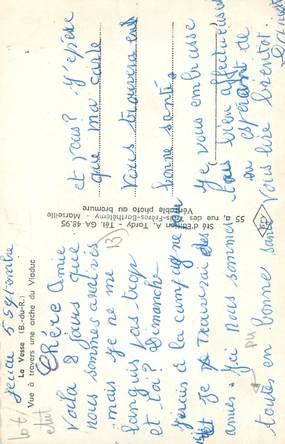 La Vesse (B.-du-R.)
Vue à travers une arche du Viaduc
Jeudi 5 Septembre
Chère Amie
Voilà 8 jours que
nous sommes arrivés
mais je ne me
languis pas trop
et toi? Dimanche
j'irais à la campagne
Je trouverai des
amies. Nous sommes
toutes en bonne santé
et vous? J'espère
que ma carte
vous trouvera en
bonne santé.
Je vous embrasse
tous bien affectueusement
en espérant de
vous lire bientôt.
Sté d'Edition A. Tardy - Tél. GA. 48.95
55, a, rue des Trois-Frères-Barthélemy - Marseille
Véritable photo au bromure